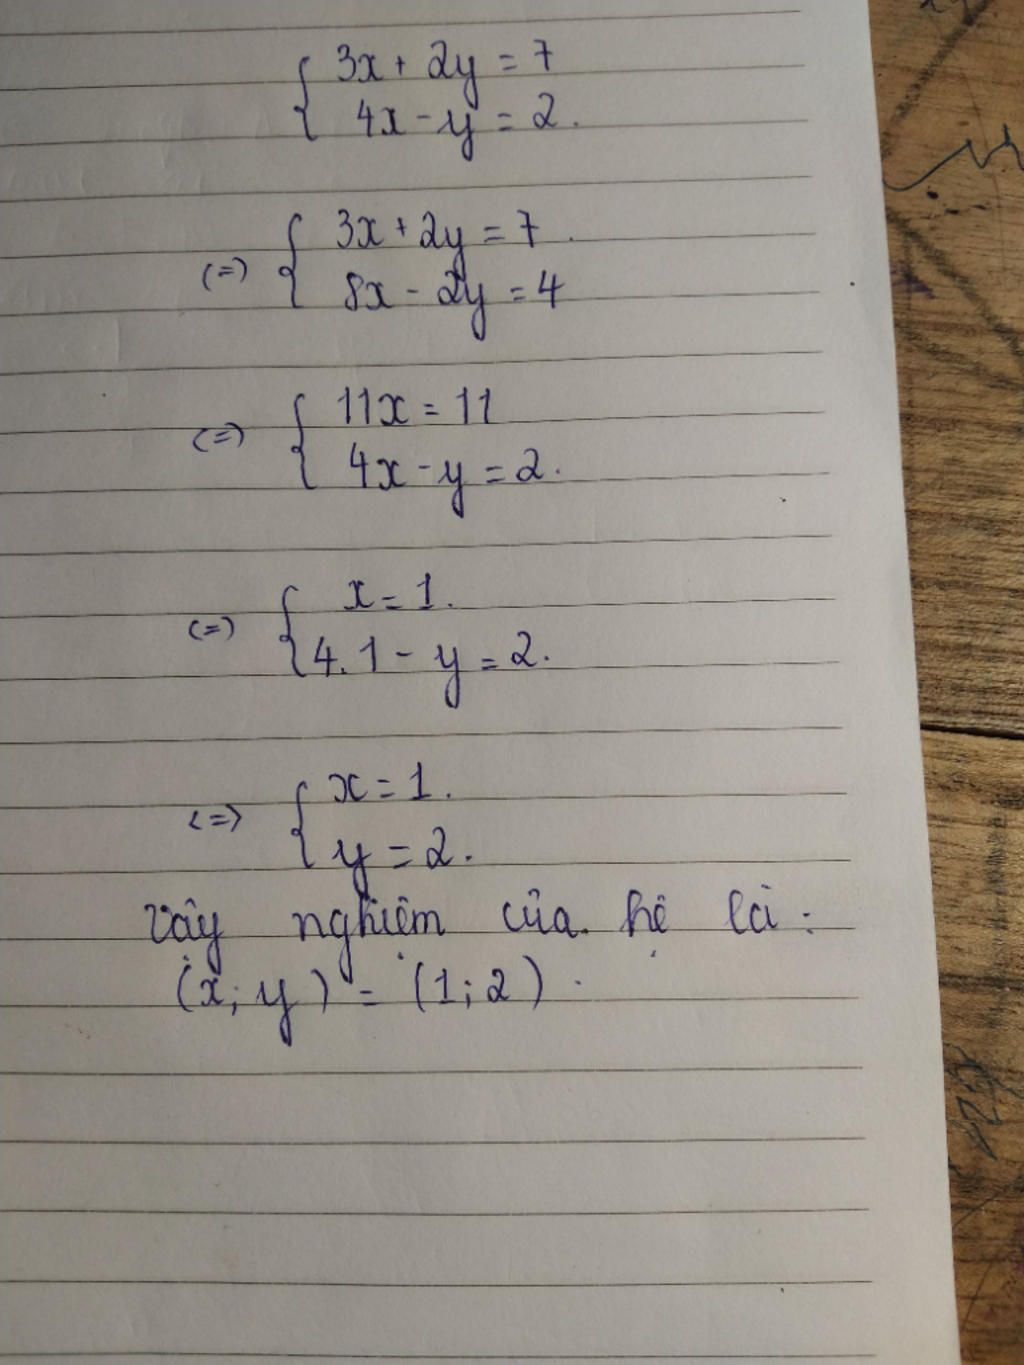 { 3x + 2y = 7
4x - y = 2.
(=) { 3x + 2y = 7.
8x - 2y = 4
(=) { 11x = 11
4x - y = 2.
(=) { x = 1.
4.1 - y = 2.
(=) { x = 1.
y = 2.
Vậy nghiệm của hệ là:
(x; y) = (1; 2).